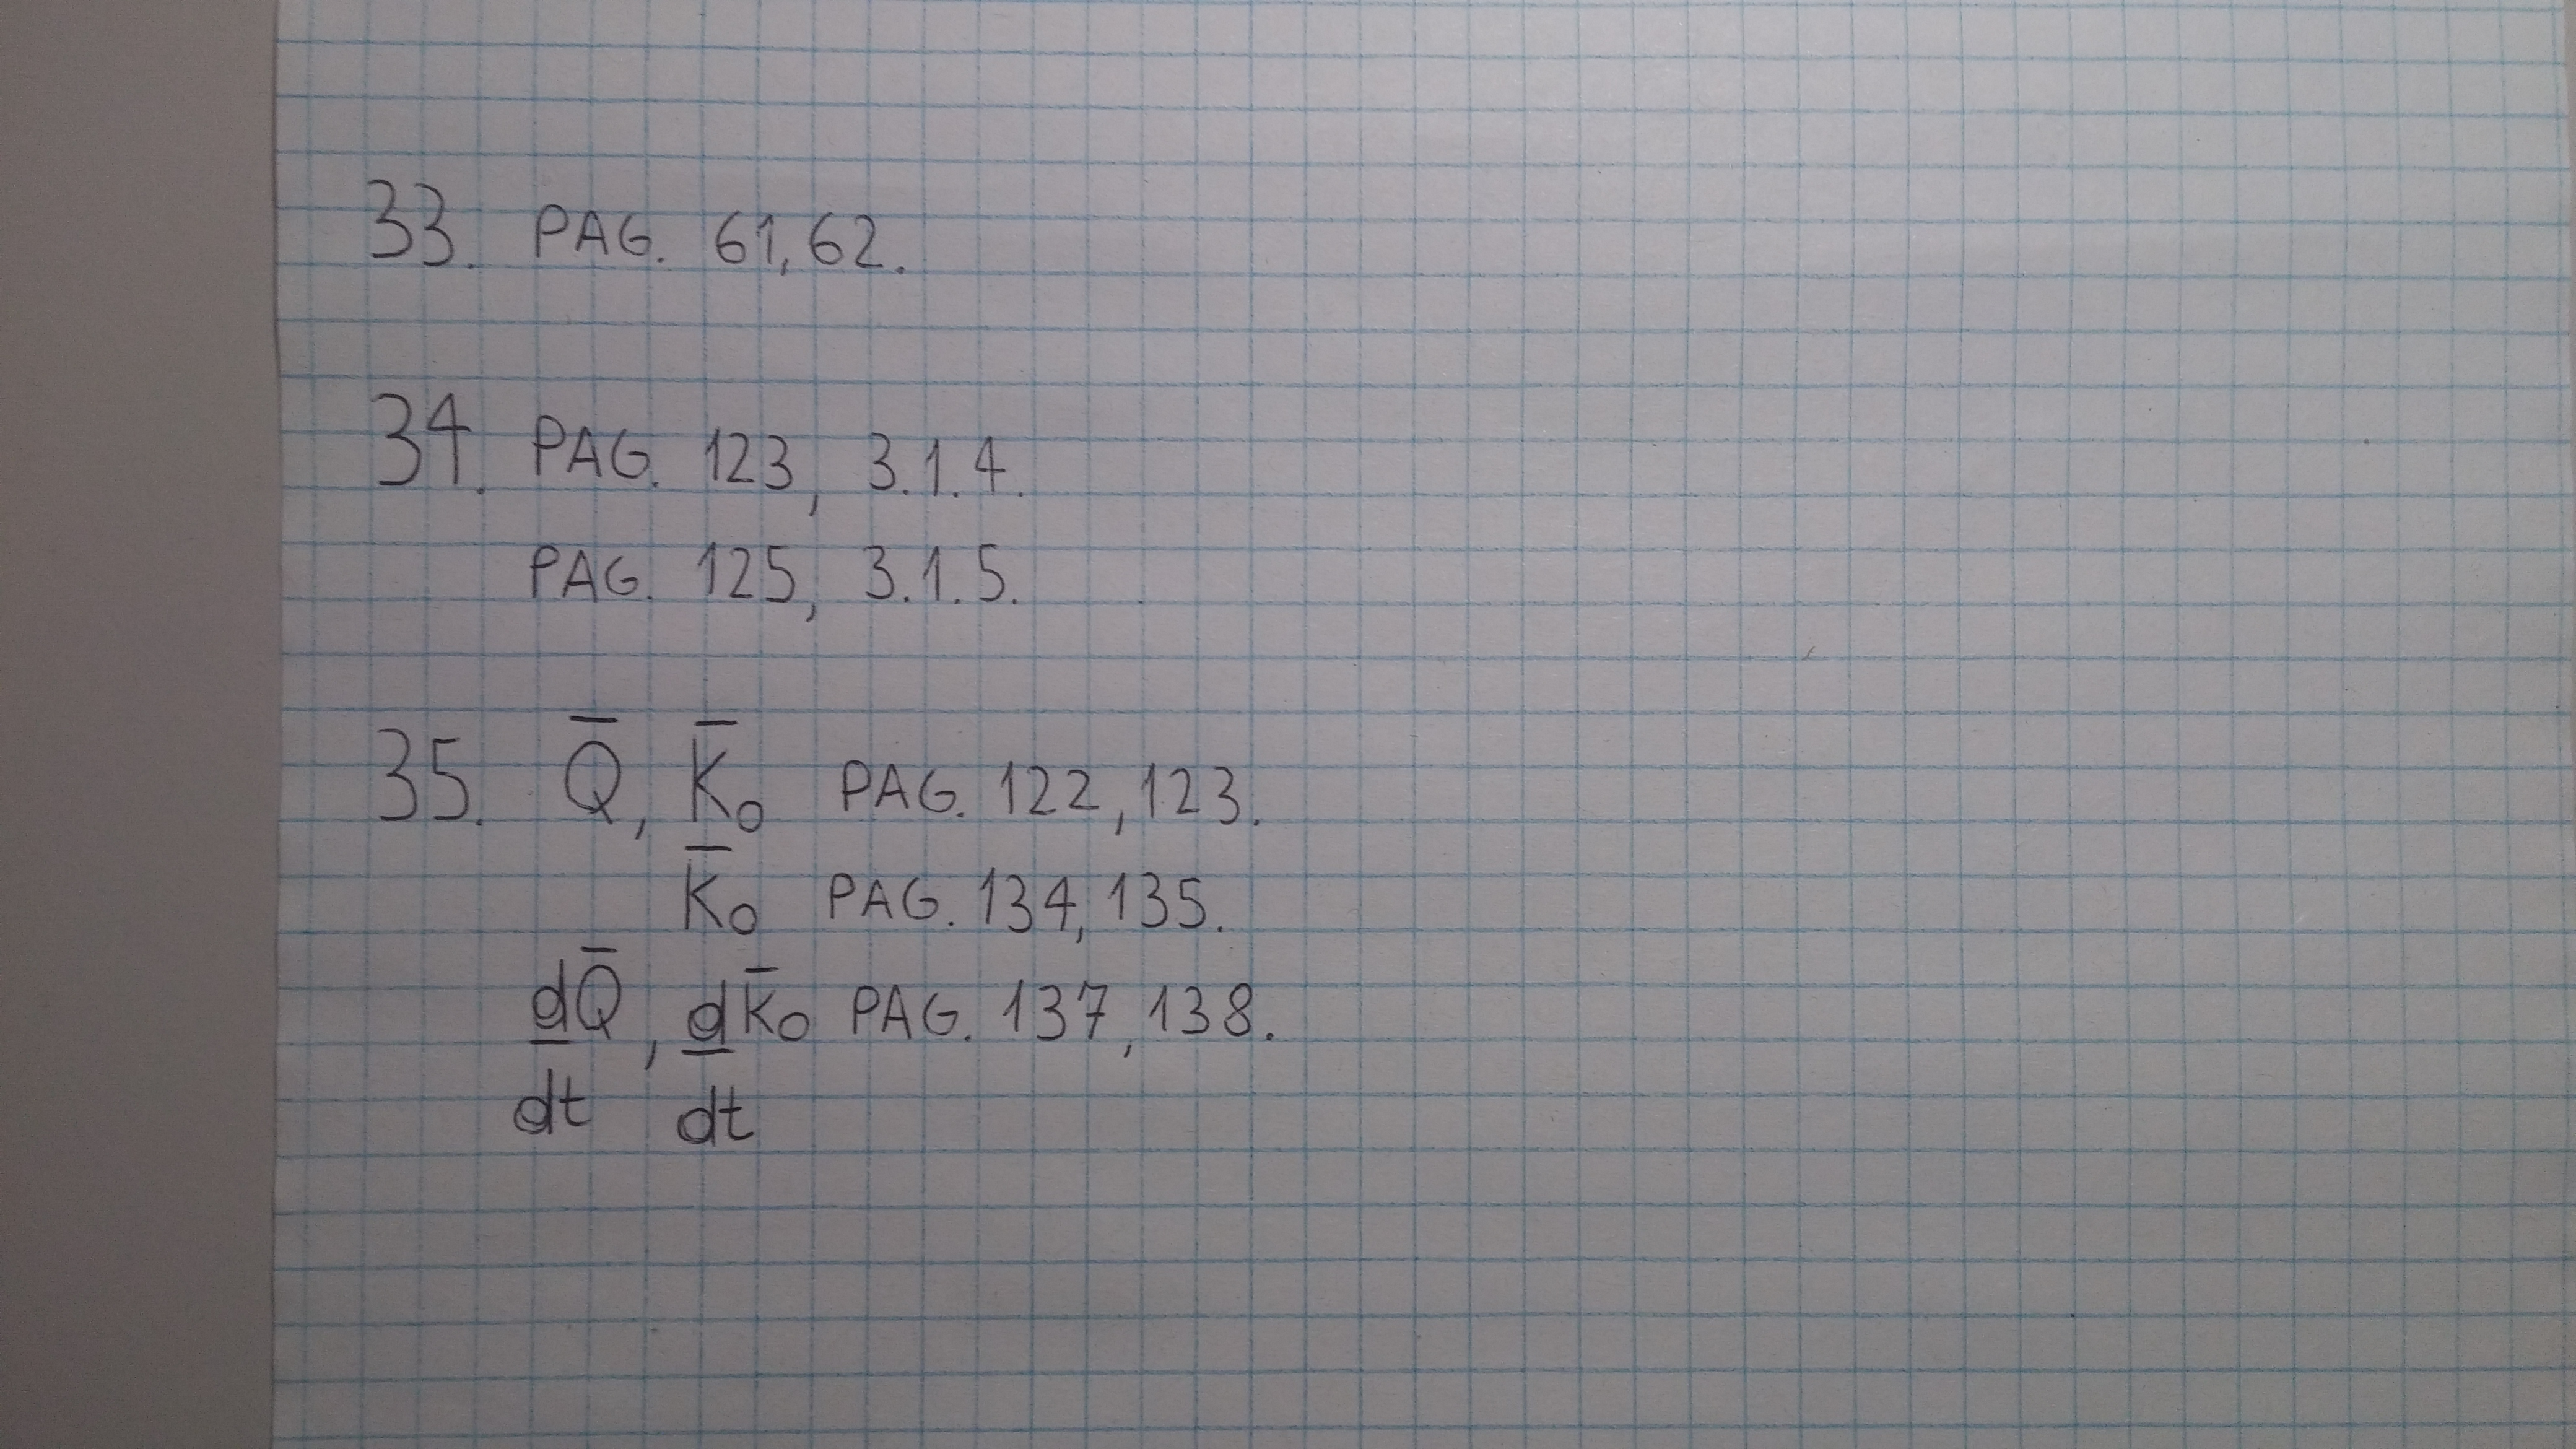 33. PAG. 61, 62.
34. PAG. 123, 3.1.4.
PAG. 125, 3.1.5.
35. Q̅, K̅₀ PAG. 122, 123.
K̅₀ PAG. 134, 135.
dQ̅/dt, dK̅₀/dt PAG. 137, 138.